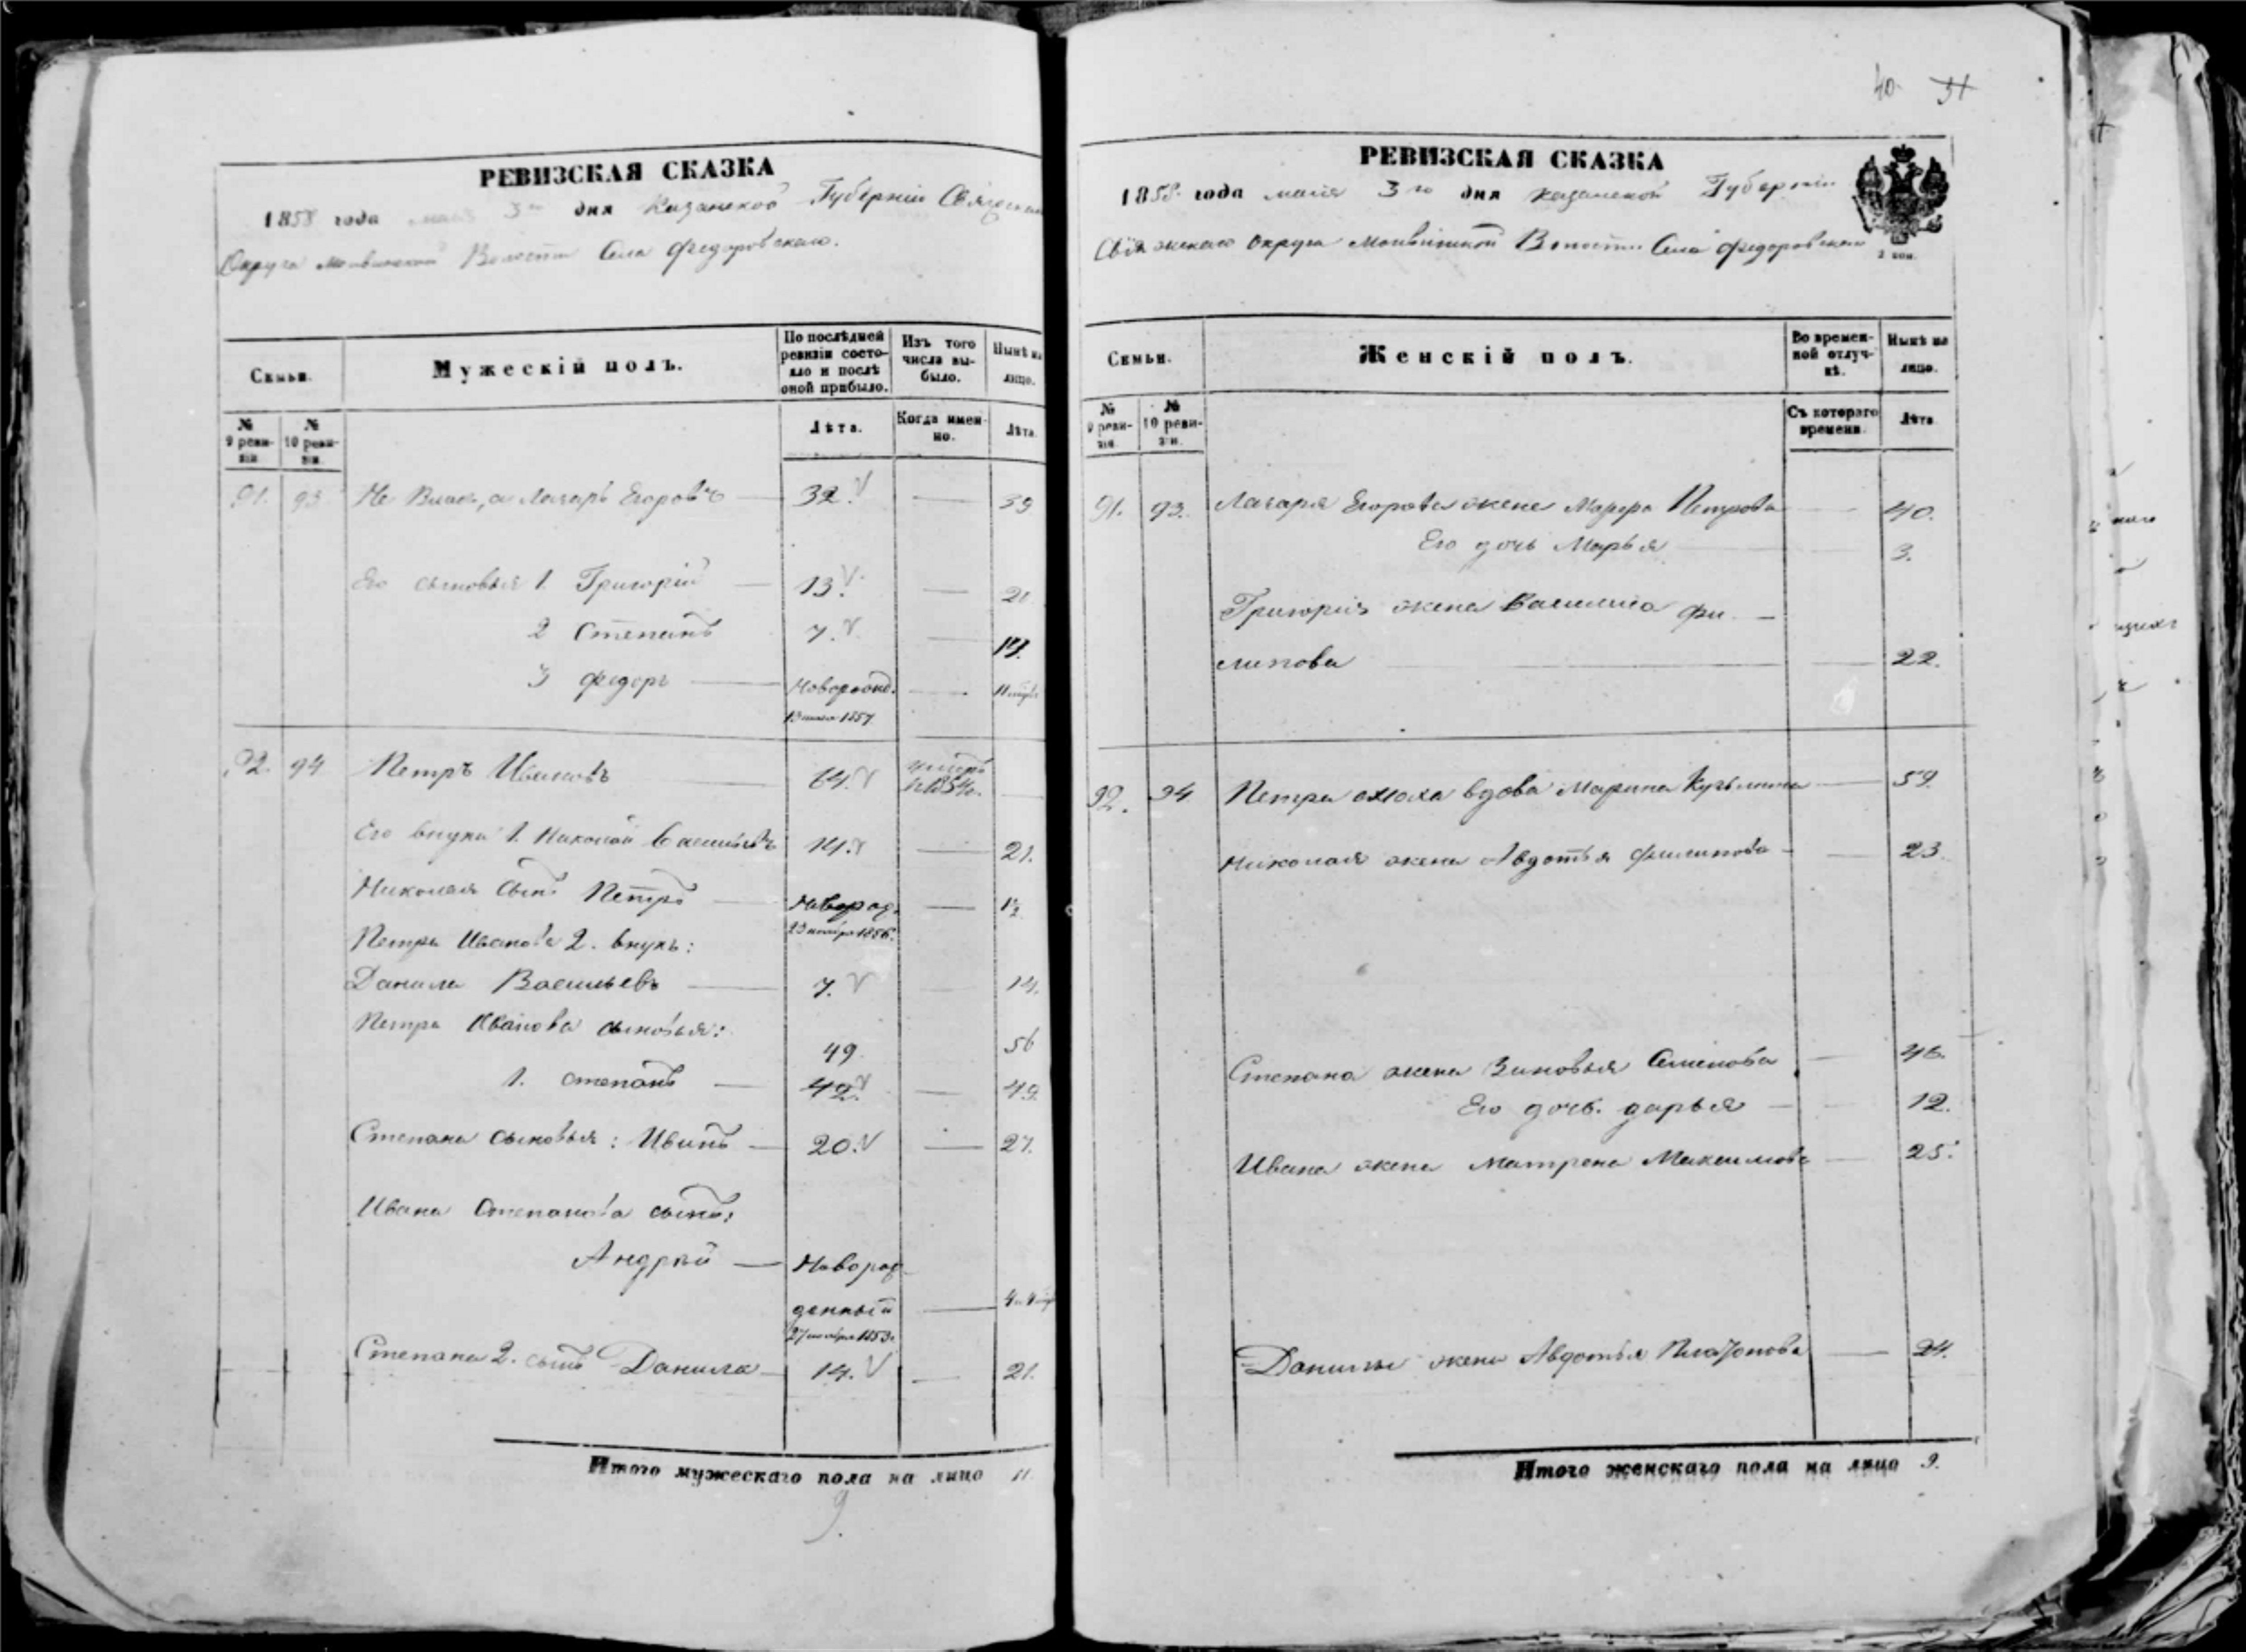 РЕВИЗСКАЯ СКАЗКА
1858 года мая 3го дня Казанской Губерніи Свіяжскаго
Округа Волости Села Федоровскаго.
Семьи.
Мужескій полъ.
По послѣдней ревизіи состояло и послѣ оной прибыло.
Изъ того числа выбыло.
Нынѣ на лицо.
№ 9 ревизіи
№ 10 ревизіи.
Лѣта.
Когда именно.
Лѣта.
91. 93 Не Власъ, а Лазарь Егоровъ — 32. V — 39
Его сыновья 1 Григорій — 13. V — 20
2 Степанъ 7. V — 14.
3 Федоръ — Новорожд. — 11
13 1857
92. 94 Петръ Ивановъ 64. V —
Его внуки 1. Николай Васильевъ 14. V — 21.
Николая сынъ Петръ — Новорож. — 1½
23 ноября 1856.
Петра Иванова 2. внукъ:
Данила Васильевъ — 7. V — 14.
Петра Иванова сыновья:
49. 56
1. Степанъ — 42. V — 49.
Степана сыновья: Иванъ — 20. V — 27.
Ивана Степанова сынъ:
Андрей — Новорож
денный — 4
27 ноября 1853.
Степана 2. сынъ Данила — 14. V — 21.
Итого мужескаго пола на лицо 11.
9.
40. 31
РЕВИЗСКАЯ СКАЗКА
1858 года мая 3го дня Казанской Губерніи
Свіяжскаго Округа Волости Села Федоровскаго
2 коп.
Семьи.
Женскій полъ.
Во временной отлучкѣ.
Нынѣ на лицо.
№ 9 ревизіи.
№ 10 ревизіи.
Съ котораго времени.
Лѣта.
91. 93. Лазаря Егорова жена Марфа Петрова — 40.
Его дочь Марья — 3.
Григорія жена Василиса Фи —
липова — 22.
92. 94 Петра вдова Марина Кузьмина — 59.
Николая жена Авдотья Филипова — 23.
Степана жена Зиновья Семенова — 46.
Его дочь. Дарья — 12.
Ивана жена Матрена Максимова — 25.
Данилы жена Авдотья Платонова — 24.
Итого женскаго пола на лицо 9.